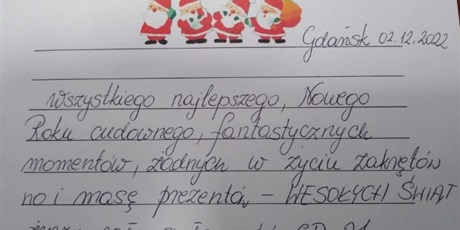 Gdańsk 02.12.2022
Wszystkiego najlepszego, Nowego
Roku cudownego, fantastycznych
momentów, żadnych w życiu zakrętów
no i masę prezentów - WESOŁYCH ŚWIĄT